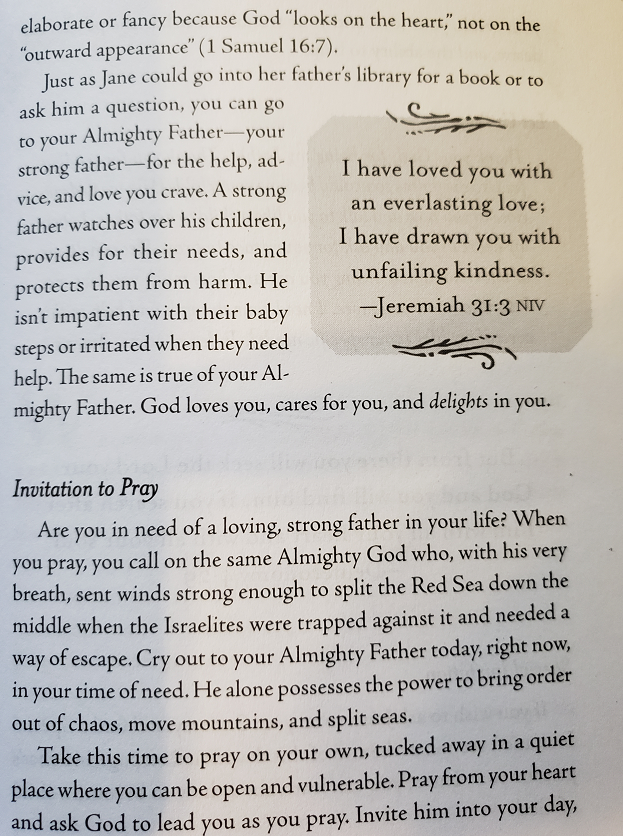 elaborate or fancy because God “looks on the heart,” not on the
“outward appearance” (1 Samuel 16:7).
Just as Jane could go into her father’s library for a book or to
ask him a question, you can go
to your Almighty Father—your
strong father—for the help, ad-
vice, and love you crave. A strong
father watches over his children,
provides for their needs, and
protects them from harm. He
isn’t impatient with their baby
steps or irritated when they need
help. The same is true of your Al-
mighty Father. God loves you, cares for you, and delights in you.
I have loved you with
an everlasting love;
I have drawn you with
unfailing kindness.
—Jeremiah 31:3 NIV
Invitation to Pray
Are you in need of a loving, strong father in your life? When
you pray, you call on the same Almighty God who, with his very
breath, sent winds strong enough to split the Red Sea down the
middle when the Israelites were trapped against it and needed a
way of escape. Cry out to your Almighty Father today, right now,
in your time of need. He alone possesses the power to bring order
out of chaos, move mountains, and split seas.
Take this time to pray on your own, tucked away in a quiet
place where you can be open and vulnerable. Pray from your heart
and ask God to lead you as you pray. Invite him into your day,